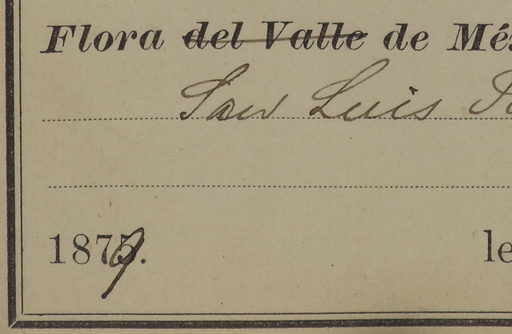 Flora del Valle de Mé
San Luis
1879.
le